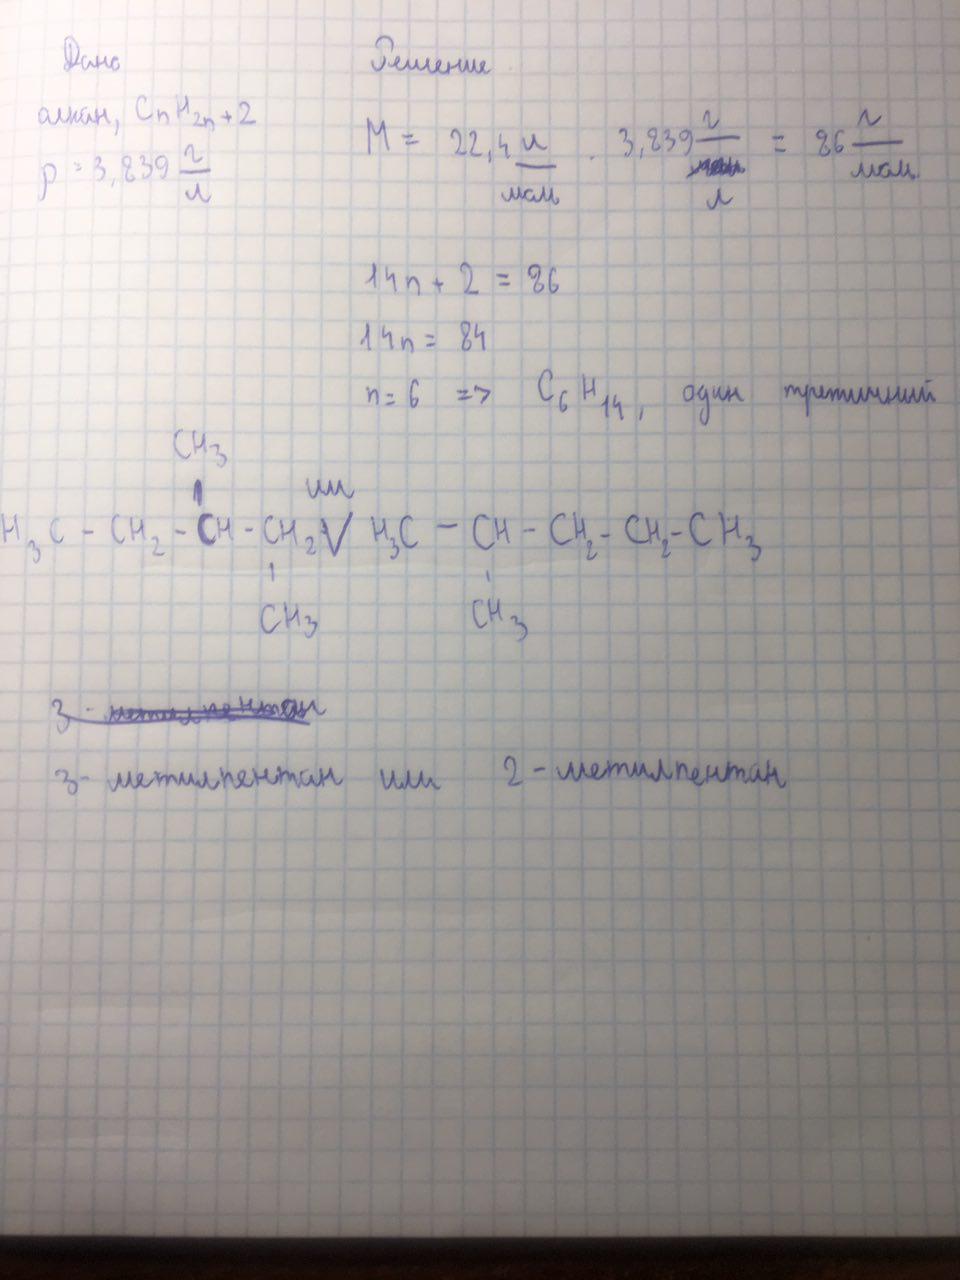 Дано
Решение
алкан, CnH2n+2
ρ = 3,839 г/л
M = 22,4 л/моль · 3,839 г/л = 86 г/моль
14n + 2 = 86
14n = 84
n = 6 => C6H14, один третичный
CH3
или
H3C - CH2 - CH - CH2 V H3C - CH - CH2 - CH2 - CH3
CH3 CH3
3 - метилпентан
3 - метилпентан или 2 - метилпентан